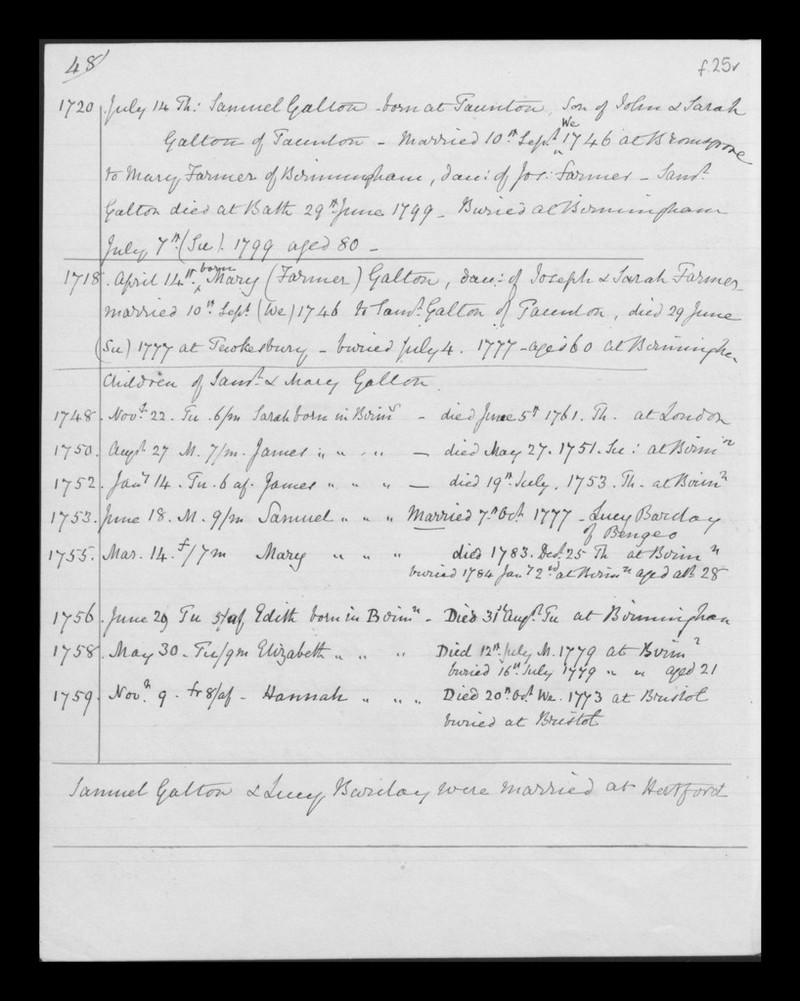 48
f.25v
1720 July 14 Th: Samuel Galton born at Taunton, Son of John & Sarah
Galton of Taunton - Married 10th Sept We 1746 at Bromsgrove
to Mary Farmer of Birmingham, dau: of Jos: Farmer - Saml
Galton died at Bath 29th June 1799 - Buried at Birmingham
July 7th (Su) 1799 aged 80 -
1718. April 14th born Mary (Farmer) Galton, dau: of Joseph & Sarah Farmer
married 10th Sept (We) 1746 to Saml Galton of Taunton, died 29 June
(Su) 1777 at Tewkesbury - buried July 4. 1777 - aged 60 at Birmingham
Children of Saml & Mary Galton.
1748. Novr 22. Tu. 6/m Sarah born in Birmm - died June 5th 1761. Th. at London
1750. Augst 27 M. 7/m. James " " " - died May 27. 1751. Su: at Birmm
1752. Jany 14. Tu. 6 af. James " " " - died 19th July. 1753. Th. at Birmm
1753. June 18. M. 9/m Samuel " " " Married 7th Oct 1777 - Lucy Barclay
of Bengeo
1755. Mar. 14. f/7m Mary " " " died 1783. Decr 25 Th at Birmm
buried 1784 Jany 2nd at Birmm aged abt 28
1756. June 29 Tu 5/af Edith born in Birmm - Died 31st Augst Tu at Birmingham
1758. May 30 - Tu/9m Elizabeth " " " Died 12th July M. 1779 at Birmm
buried 16th July 1779 " " aged 21
1759. Novr 9. fr 8/af - Hannah " " " Died 20th Oct We. 1773 at Bristol
buried at Bristol
Samuel Galton & Lucy Barclay were married at Hertford